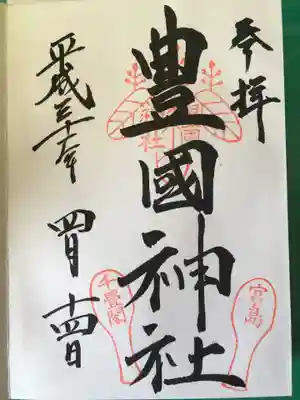 参拝
豊國神社
平成三十年
四月十四日
宮島
千畳閣